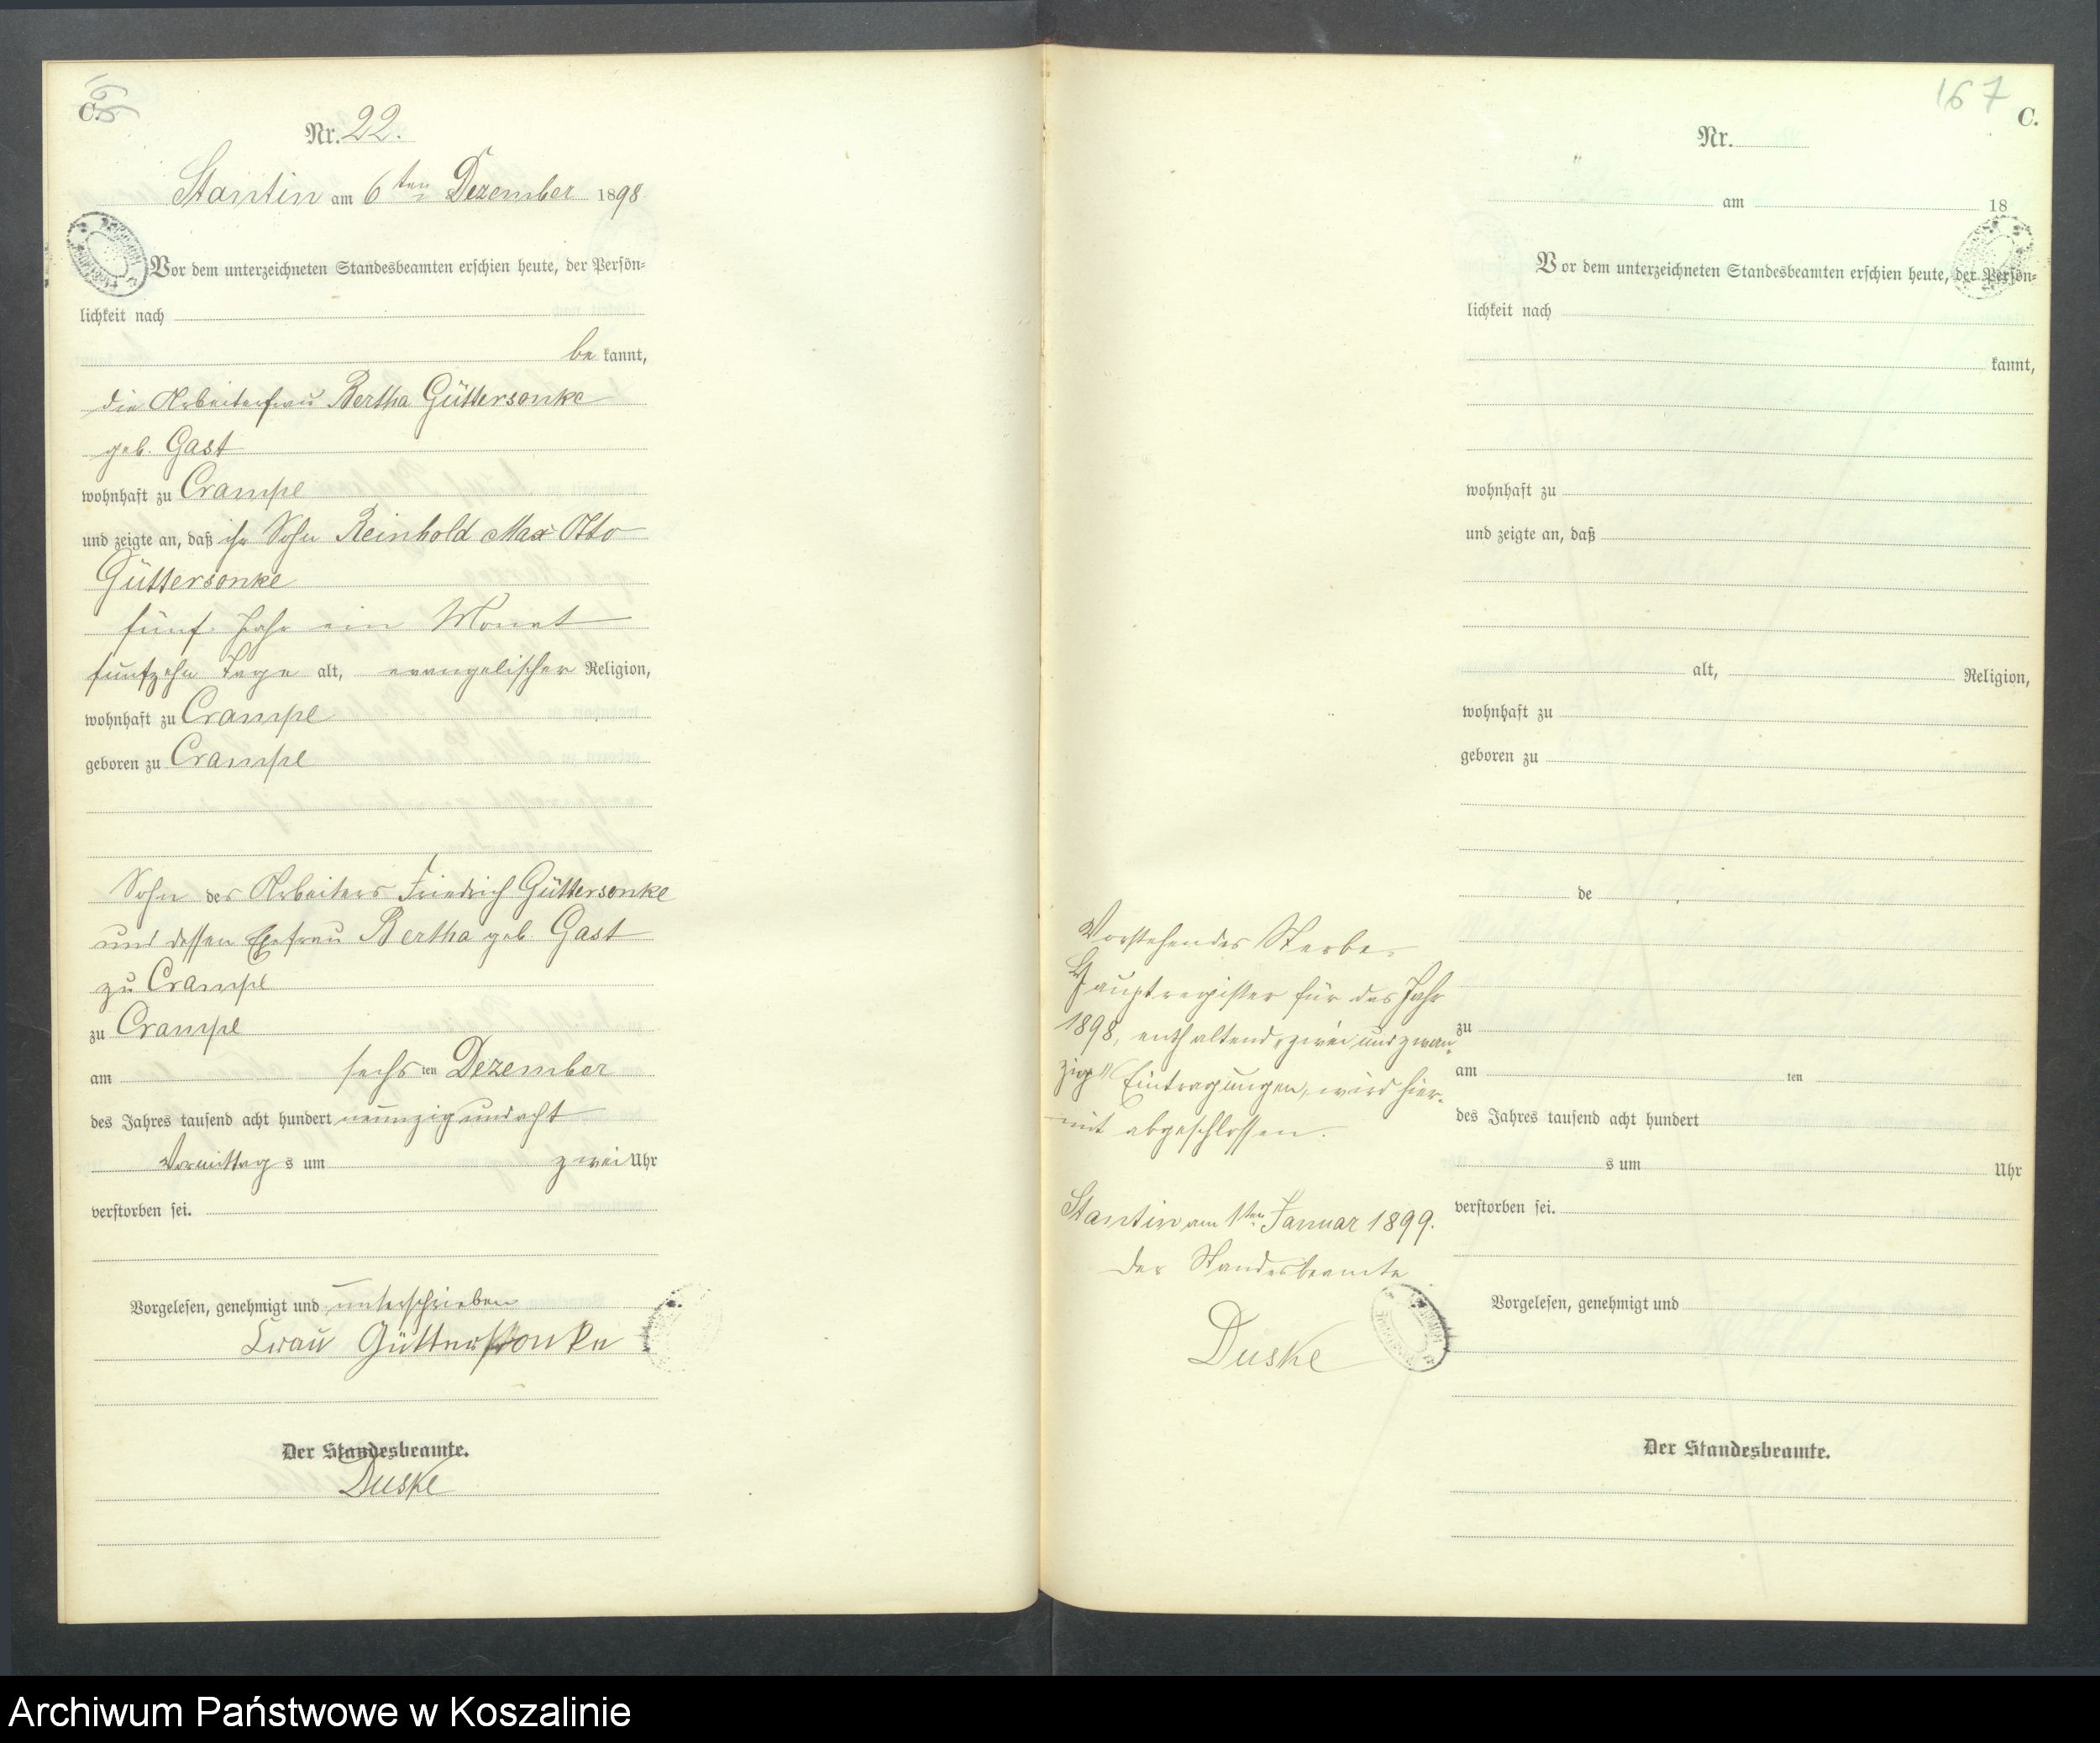 C.
Nr. 22.
Stantin am 6ten Dezember 1898
Vor dem unterzeichneten Standesbeamten erschien heute, der Persön-
lichkeit nach
be kannt,
die Arbeiterfrau Bertha Güttersonke
geb. Gast
wohnhaft zu Crampe
und zeigte an, daß ihr Sohn Reinhold Max Otto
Güttersonke
fünf Jahr ein Monat
fünfzehn Tage alt, evangelischer Religion,
wohnhaft zu Crampe
geboren zu Crampe
Sohn des Arbeiters Friedrich Güttersonke
und dessen Ehefrau Bertha geb. Gast
zu Crampe
zu Crampe
am sechs ten Dezember
des Jahres tausend acht hundert neunzig und acht
Vormittag s um zwei Uhr
verstorben sei.
Vorgelesen, genehmigt und unterschrieben
Frau Güttersonke
Der Standesbeamte.
Duske
167
C.
Nr.
am 18
Vor dem unterzeichneten Standesbeamten erschien heute, der Persön-
lichkeit nach
kannt,
wohnhaft zu
und zeigte an, daß
alt, Religion,
wohnhaft zu
geboren zu
de
zu
am ten
des Jahres tausend acht hundert
s um Uhr
verstorben sei.
Vorgelesen, genehmigt und
Der Standesbeamte.
Vorstehendes Sterbe-
Hauptregister für das Jahr
1898, enthaltend „zwei und zwan-
zig" Eintragungen, wird hier-
mit abgeschlossen.
Stantin am 1ten Januar 1899.
Der Standesbeamte
Duske
Archiwum Państwowe w Koszalinie